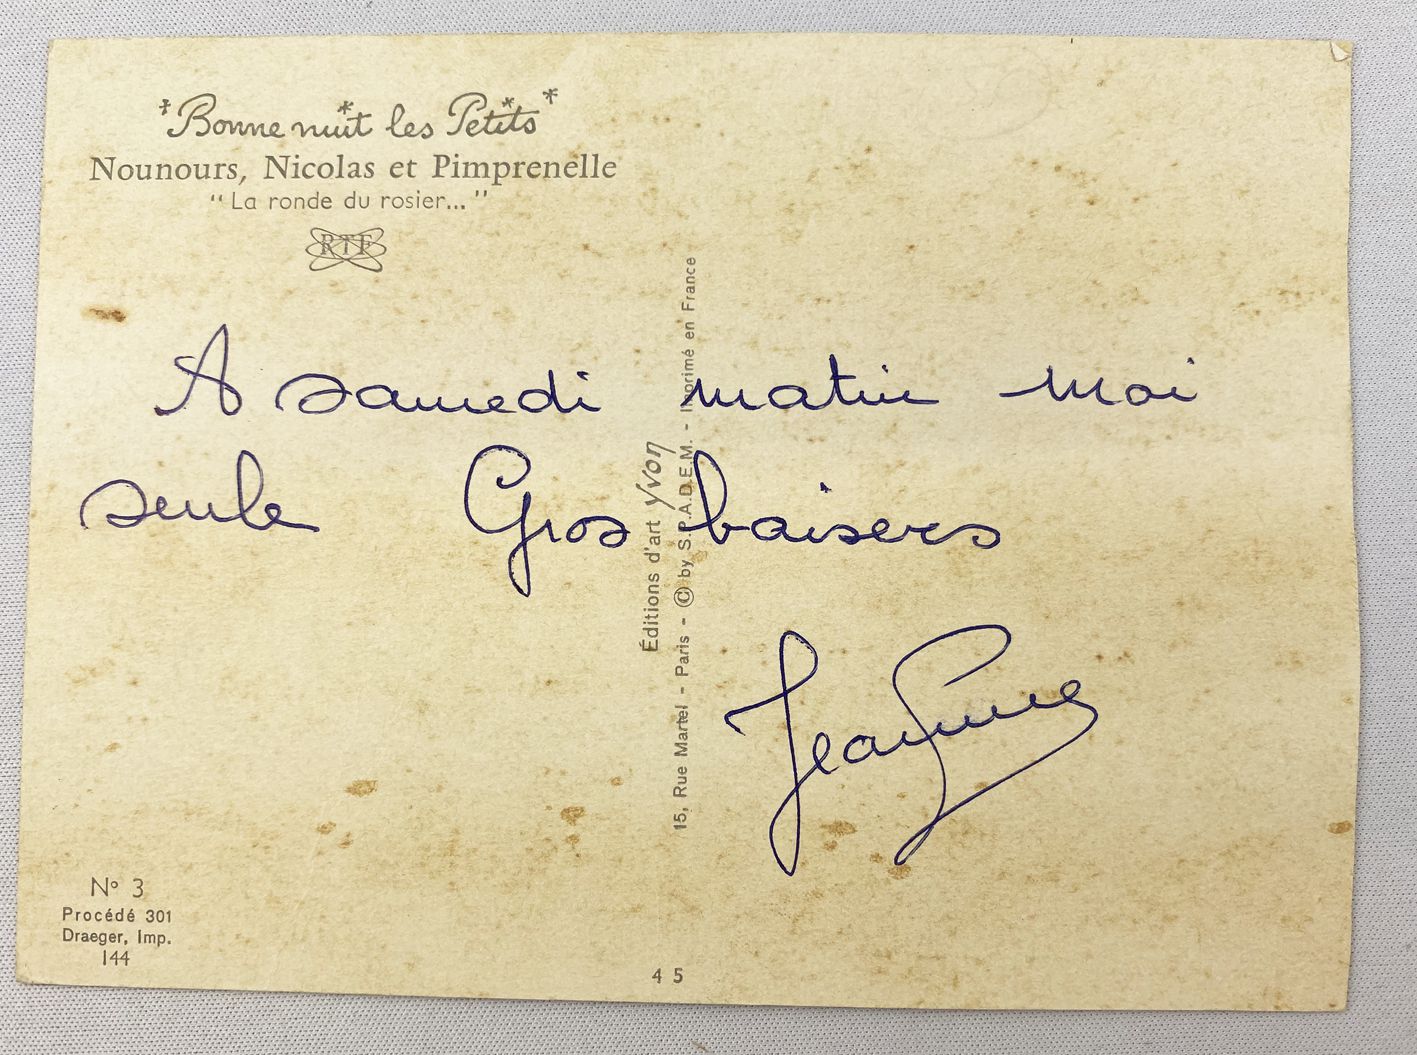 Bonne nuit les Petits
Nounours, Nicolas et Pimprenelle
"La ronde du rosier..."
RTF
A samedi matin moi
seule Gros baisers
Jeannine
Éditions d'art yvon
15, Rue Martel - Paris - © by S.P.A.D.E.M. - Imprimé en France
N° 3
Procédé 301
Draeger, Imp.
144
45